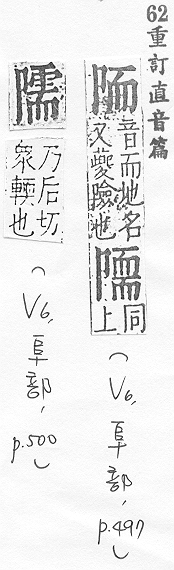 62 重訂直音篇
陑 音而地名
又夔險地
同上
(V6, 阜部, p.497)
乃后切
眾輭也
(V6, 阜部, p.500)